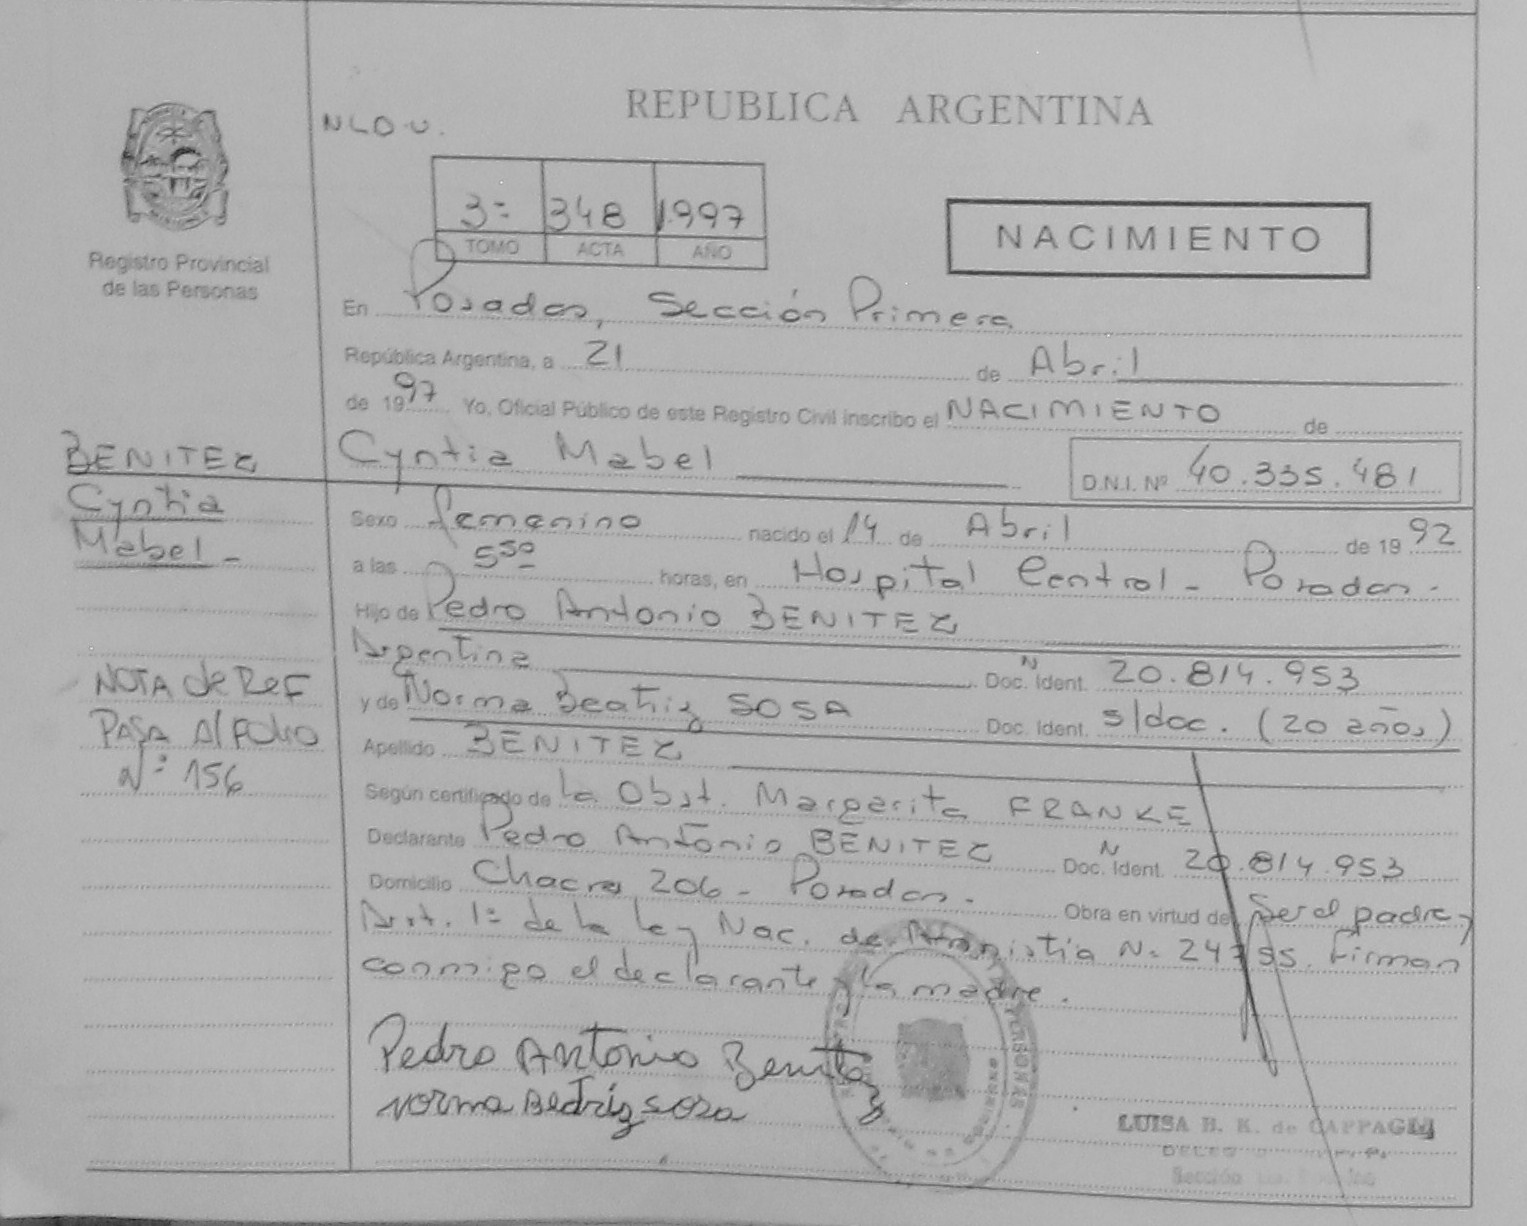 REPUBLICA ARGENTINA
Registro Provincial
de las Personas
NLO.U.
3º 348 1997
TOMO ACTA AÑO
NACIMIENTO
En Posadas, Sección Primera
República Argentina, a 21 de Abril
de 1997 Yo, Oficial Público de este Registro Civil inscribo el NACIMIENTO de
Cyntia Mabel D.N.I. Nº 40.335.481
BENITEZ
Cyntia
Mabel -
Sexo femenino nacido el 14 de Abril de 1992
a las 5 30 horas, en Hospital Central - Posadas.
Hijo de Pedro Antonio BENITEZ
Argentina Doc. N Ident. 20.814.953
y de Norma Beatriz SOSA Doc. Ident. s/doc. (20 años)
Apellido BENITEZ
NOTA de REF
PASA Al FOLIO
Nº 156
Según certificado de la Obst. Margarita FRANKE
Declarante Pedro Antonio BENITEZ Doc. N Ident. 20.814.953
Domicilio Chacra 206 - Posadas. Obra en virtud de Ser el padre,
Art. 1º de la ley Nac. de Amnistia Nº 24755. Firman
conmigo el declarante y la madre.
Pedro Antonio Benitez
Norma Beatriz Sosa
PERSONAS
LUISA B. K. de CAPPAGLI
Sección